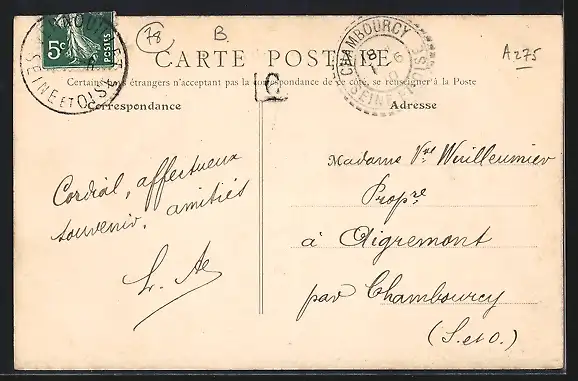 78
B.
A275
5c
POSTES
SEINE ET OISE
CHAMBOURCY
18
6
SEINE ET OISE
CARTE POSTALE
Certains pays étrangers n'acceptant pas la correspondance de ce côté, se renseigner à la Poste
C
Correspondance
Adresse
Cordial, affectueux
souvenir, amitiés
Madame Vve Wuilleumier
Propre
à Aigremont
par Chambourcy
(S. et O.)